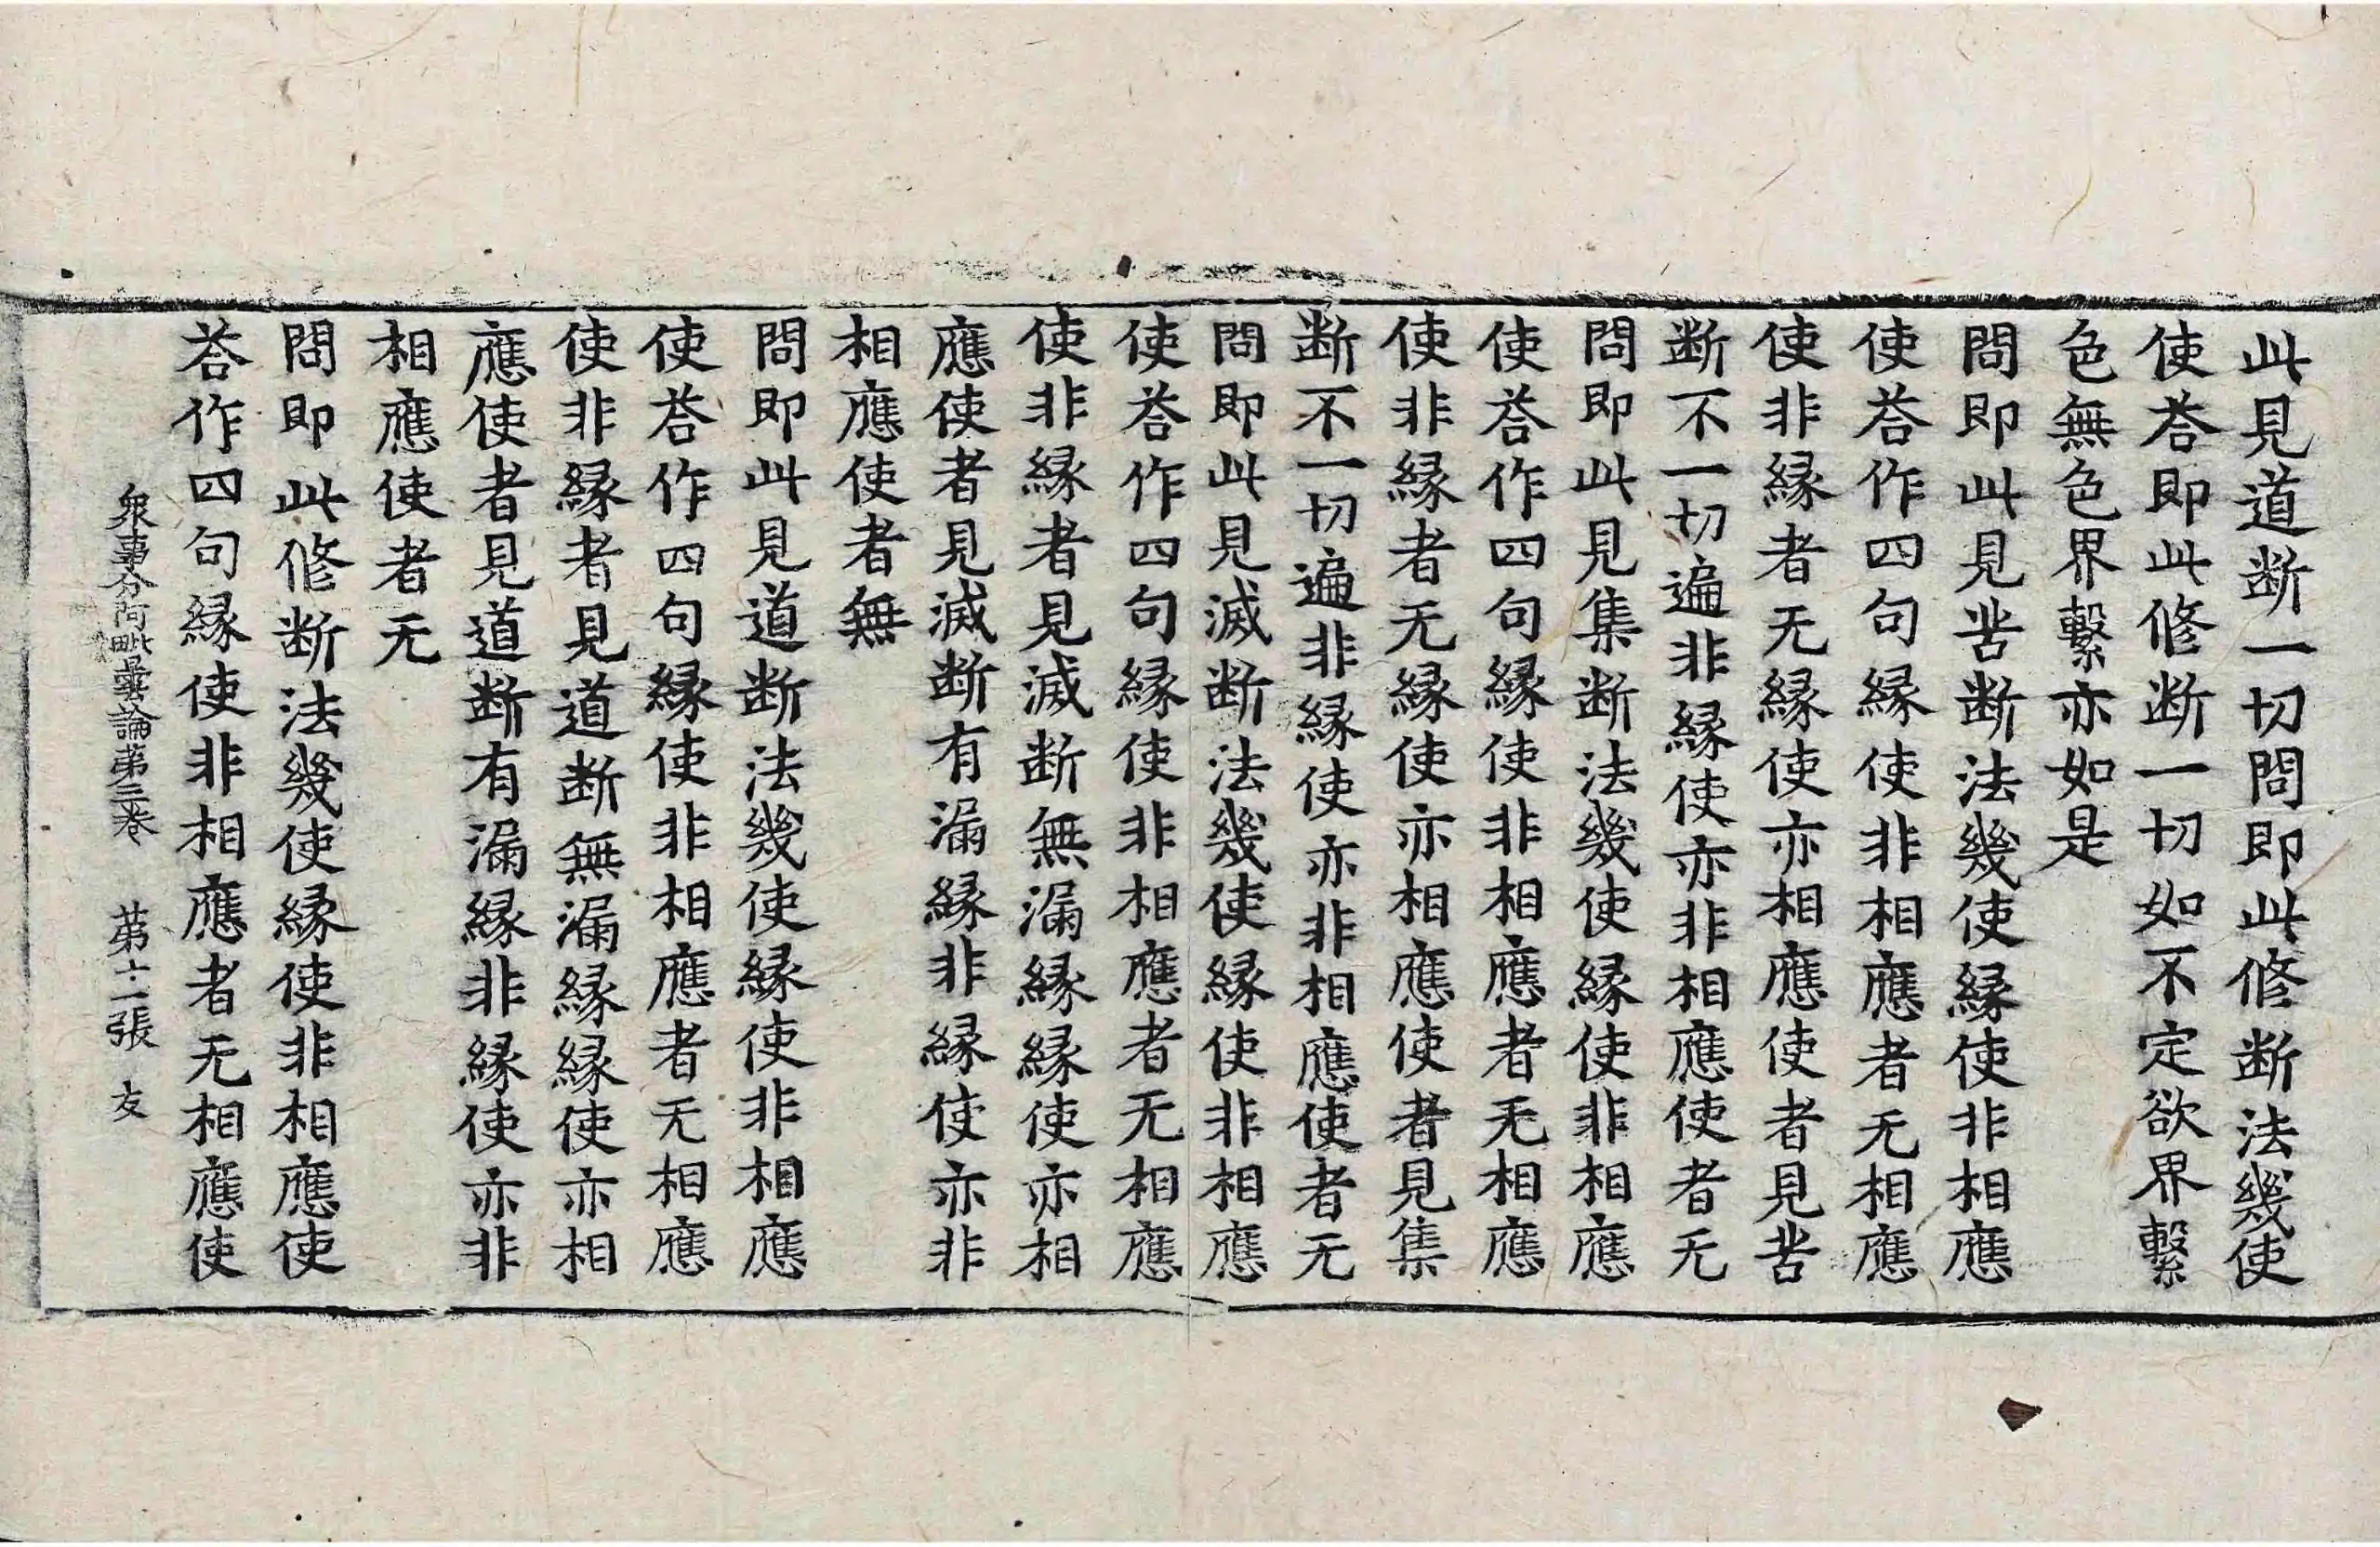 此見道断一切問即此修断法幾使
使荅即此修断一切如不定欲界繫
色無色界繫亦如是
問即此見苦断法幾使縁使非相應
使荅作四句縁使非相應者无相應
使非縁者无縁使亦相應使者見苦
断不一切遍非縁使亦非相應使者无
問即此見集断法幾使縁使非相應
使荅作四句縁使非相應者无相應
使非縁者无縁使亦相應使者見集
断不一切遍非縁使亦非相應使者无
問即此見滅断法幾使縁使非相應
使荅作四句縁使非相應者无相應
使非縁者見滅断無漏縁縁使亦相
應使者見滅断有漏縁非縁使亦非
相應使者無
問即此見道断法幾使縁使非相應
使荅作四句縁使非相應者无相應
使非縁者見道断無漏縁縁使亦相
應使者見道断有漏縁非縁使亦非
相應使者无
問即此修断法幾使縁使非相應使
荅作四句縁使非相應者无相應使
衆事分阿毗曇論第三卷 第十二張 友